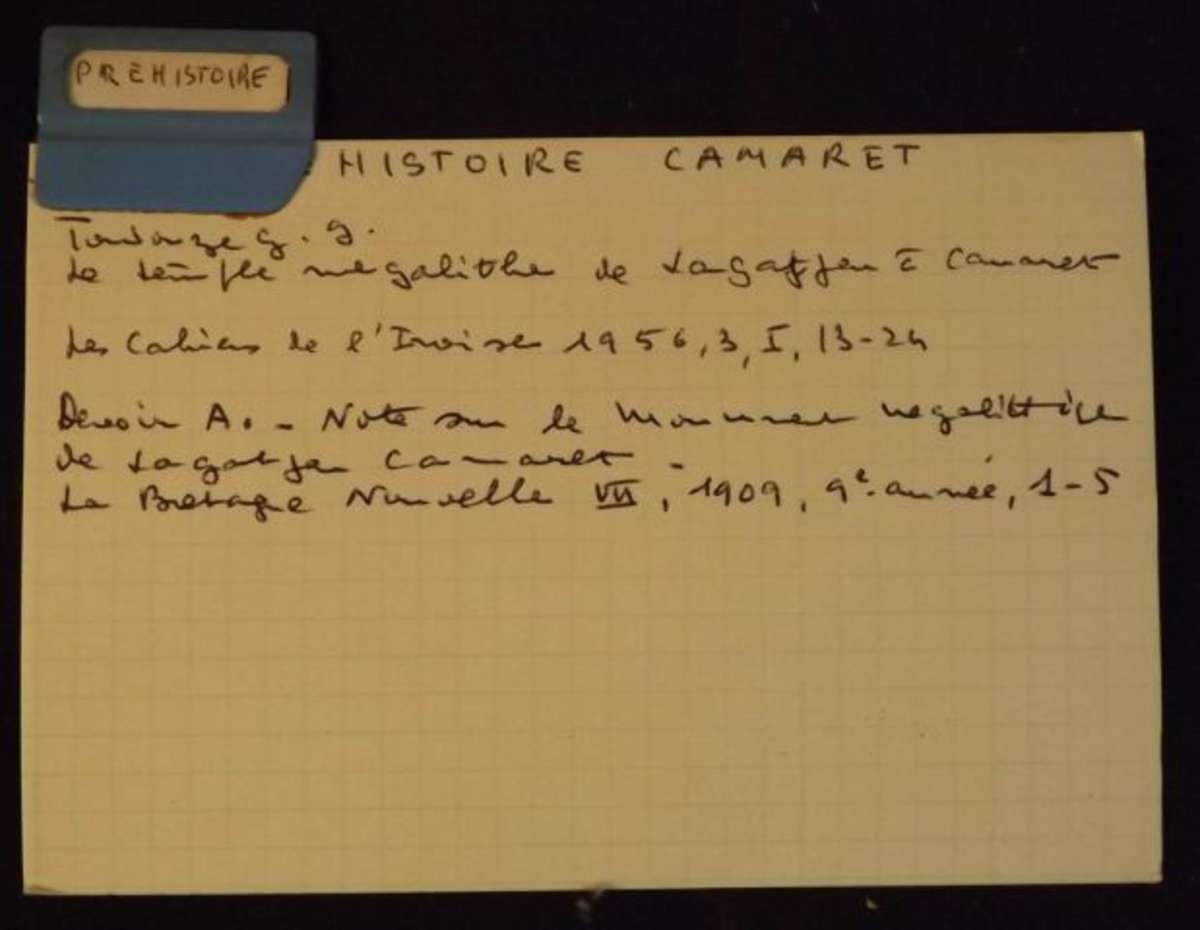 PREHISTOIRE
HISTOIRE CAMARET
Toudouze G. G.
Le temple megalithe de Lagatjen à Camaret
Les Cahiers de l'Iroise 1956, 3, I, 13-24
Devoir A. - Note sur le monument megalithique
de Lagatjen Camaret -
La Bretagne Nouvelle VII, 1909, 9e année, 1-5